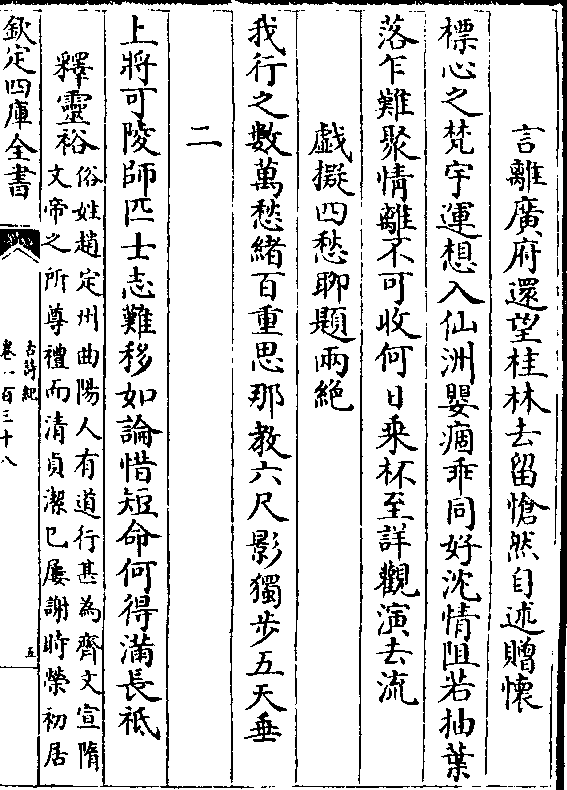 言離廣府還望桂林去留愴然自述贈懷
標心之梵宇運想入仙洲嬰痼乖同好沈情阻若抽葉
落乍難聚情離不可收何日乘杯至詳觀演去流
戯擬四愁聊題兩絶
我行之數萬愁緒百重思那教六尺影獨步五天垂
二
上將可陵師匹士志難移如論惜短命何得滿長祇
釋靈裕俗姓趙定州曲陽人有道行甚為齊文宣隋
文帝之所尊禮而清貞潔己屢謝時榮初居
欽定四庫全書
古詩紀
卷一百三十八
五